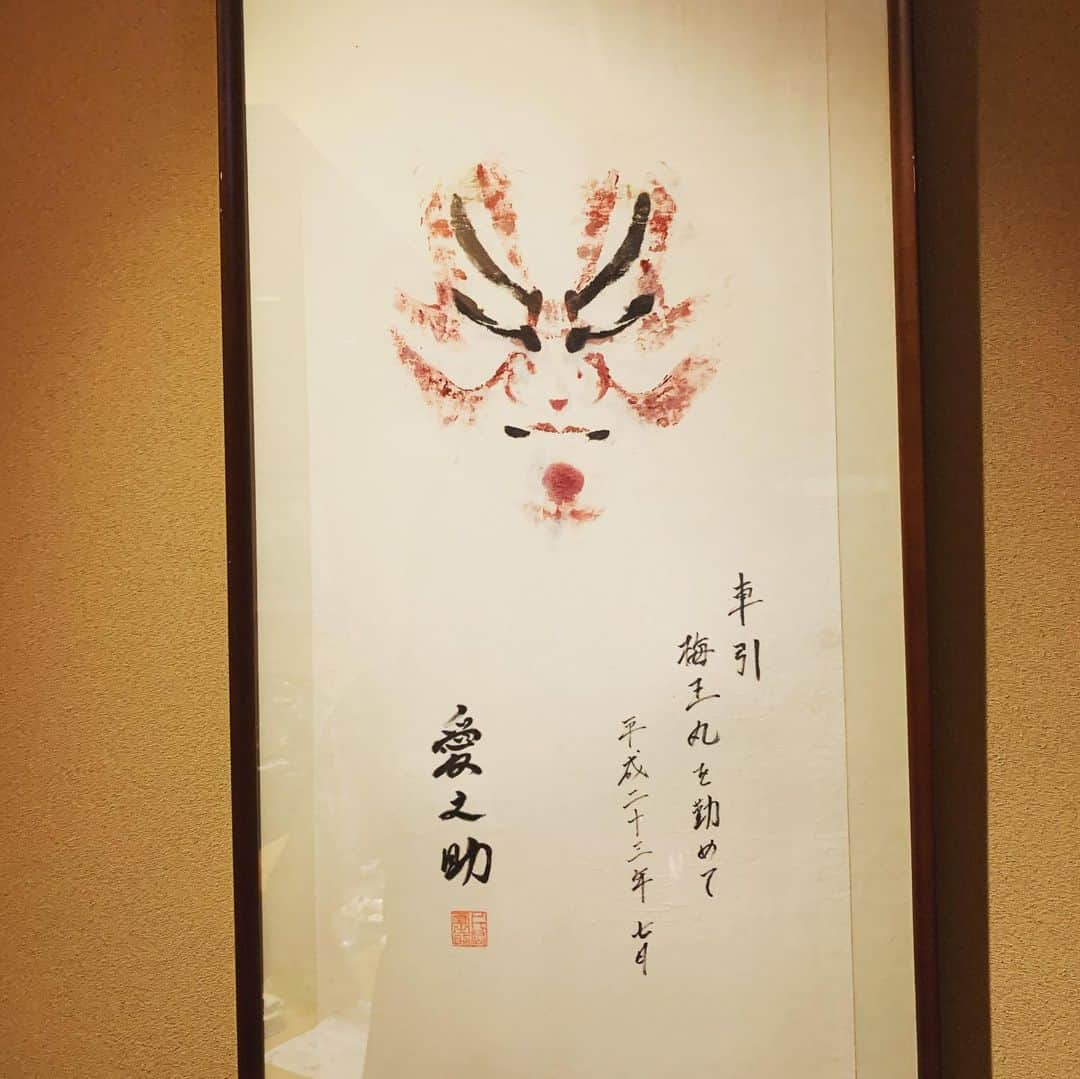 車引
梅王丸を勤めて
平成二十三年 七月
愛之助